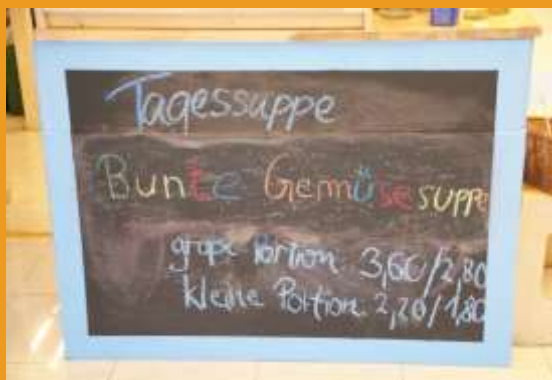 Tagessuppe
Bunte Gemüsesuppe
große Portion 3,60/2,80
kleine Portion 2,20/1,80